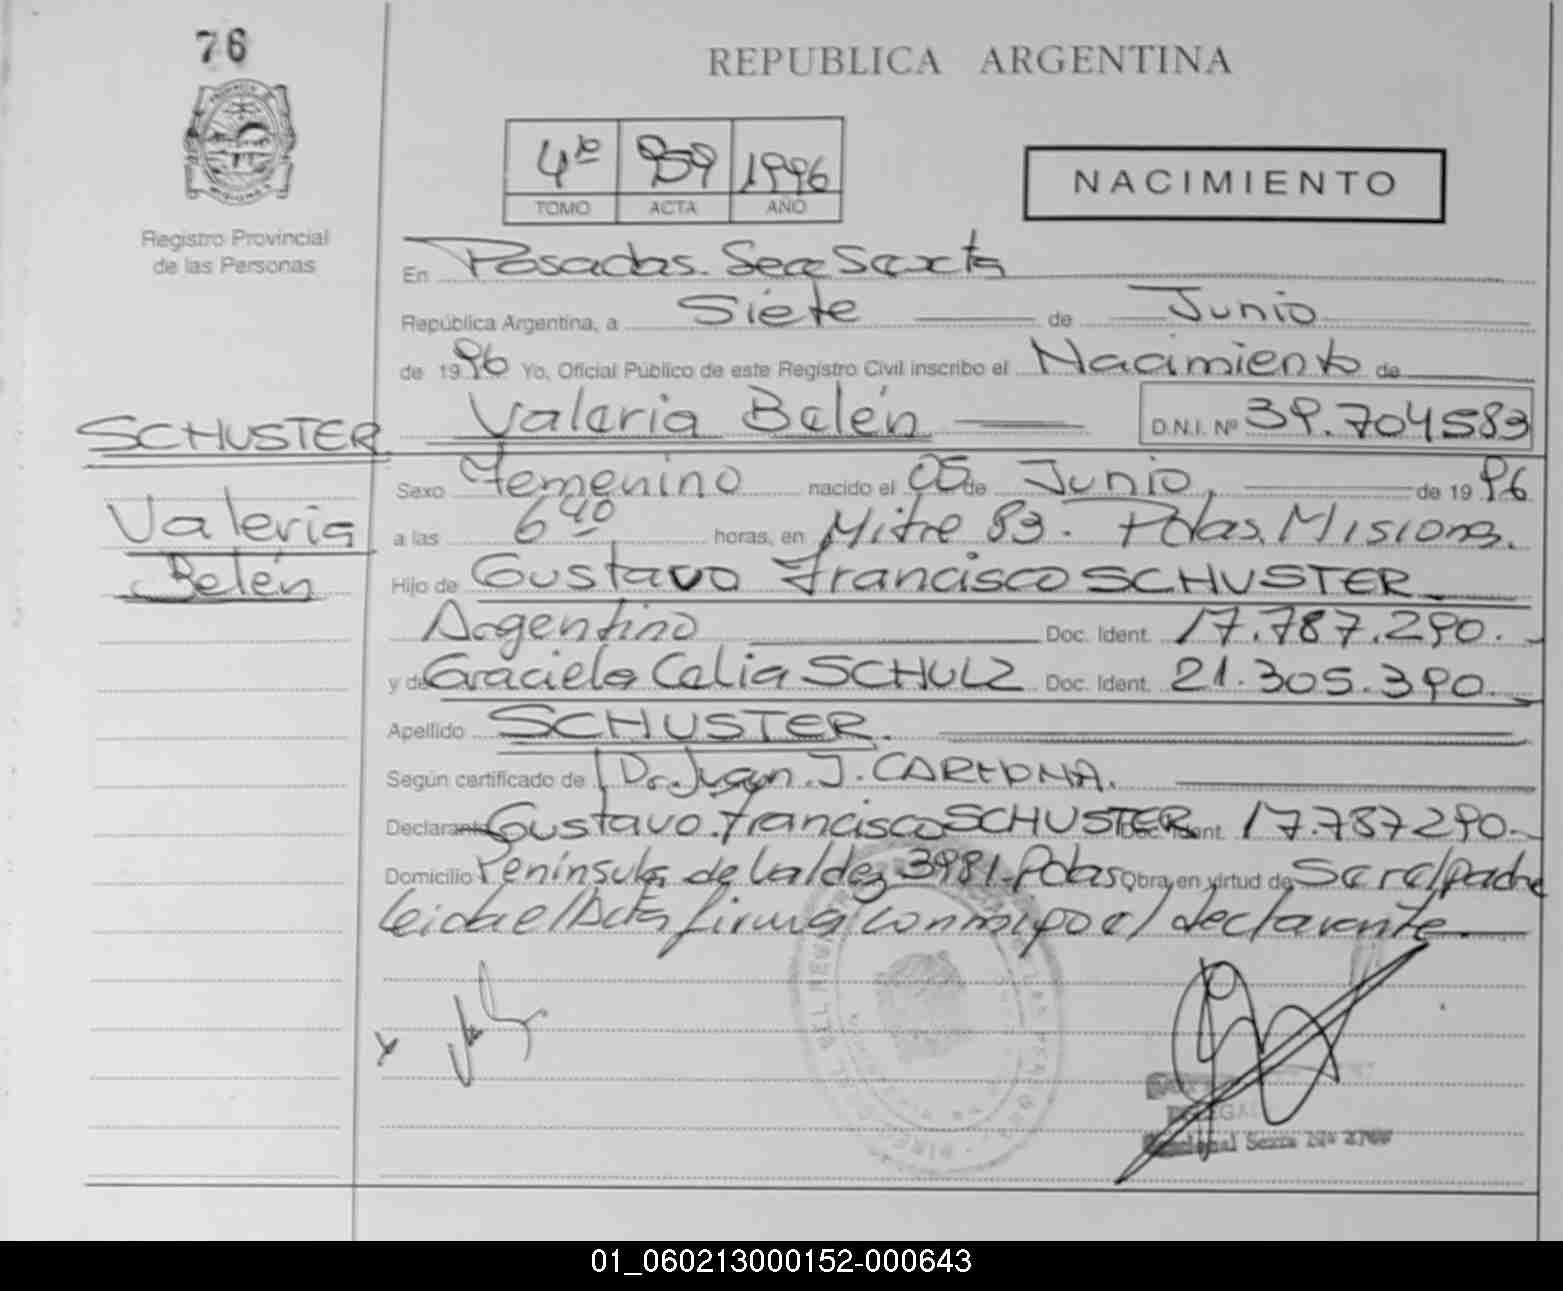 76
REPUBLICA ARGENTINA
4º 959 1996
TOMO ACTA AÑO
NACIMIENTO
Registro Provincial
de las Personas
En Posadas. Secc Sexta
República Argentina, a Siete de Junio
de 1996 Yo, Oficial Público de este Registro Civil inscribo el Nacimiento de
SCHUSTER Valeria Belén D.N.I. Nº 39.704583
Sexo Femenino nacido el 05 de Junio, de 1996
Valeria
a las 6 40 horas, en Mitre 83. Pdas. Misiones.
Belén
Hijo de Gustavo Francisco SCHUSTER
Argentino Doc. Ident. 17.787.290.
y de Graciela Celia SCHULZ Doc. Ident. 21.305.390.
Apellido SCHUSTER.
Según certificado de Dr. Juan. J. CARDONA.
Declarante Gustavo. Francisco SCHUSTER Doc. Ident. 17.787290.
Domicilio Península de Valdez 3981. Pdas Obra, en virtud de Ser el padre
Leida el Acta firma conmigo el declarante.
x
Sexta Nº
01_060213000152-000643